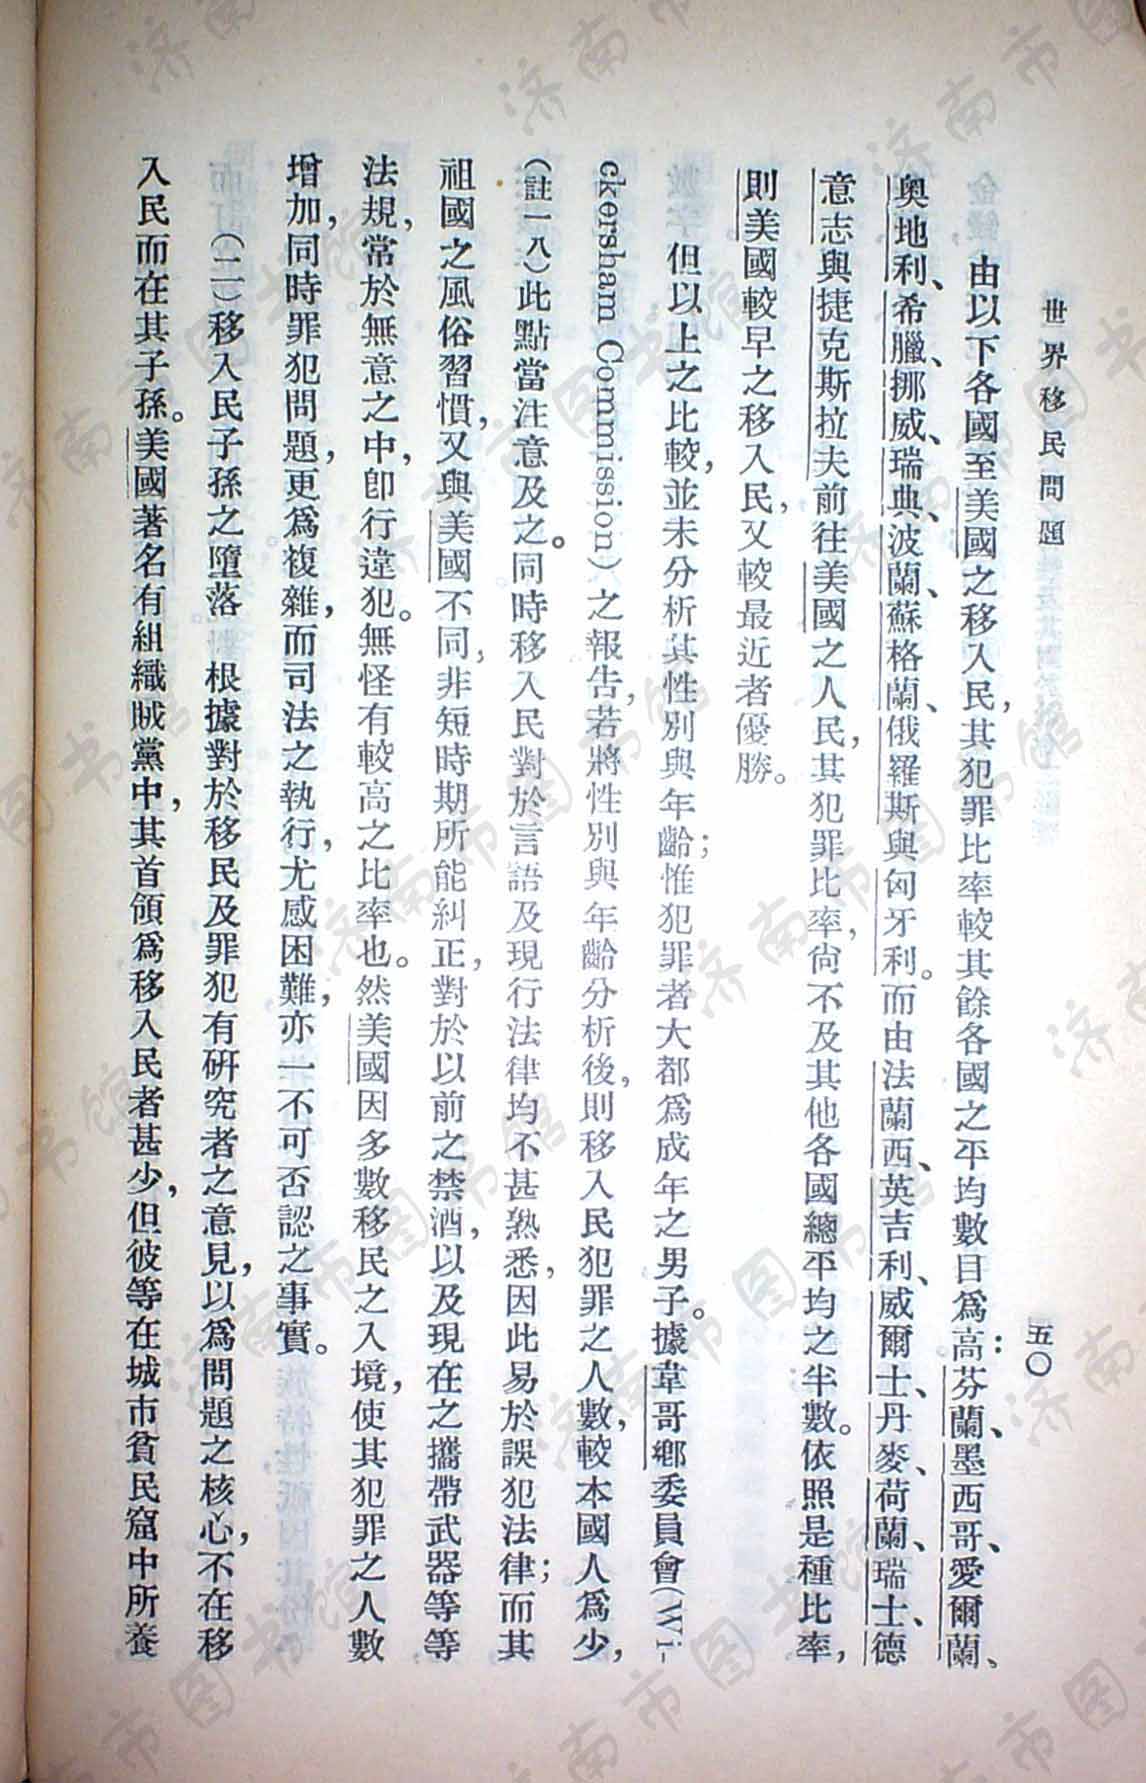 世界移民問題
五〇
由以下各國至美國之移入民，其犯罪比率較其餘各國之平均數目爲高：芬蘭、墨西哥、愛爾蘭、
奧地利、希臘、挪威、瑞典、波蘭、蘇格蘭、俄羅斯與匈牙利。而由法蘭西、英吉利、威爾士、丹麥、荷蘭、瑞士、德
意志與捷克斯拉夫前往美國之人民，其犯罪比率，尙不及其他各國總平均之半數。依照是種比率，
則美國較早之移入民，又較最近者優勝。
但以上之比較，並未分析其性別與年齡；惟犯罪者大都爲成年之男子。據韋哥鄉委員會(Wi-
ckersham Commission)之報告，若將性別與年齡分析後，則移入民犯罪之人數，較本國人爲少，
（註一八）此點當注意及之。同時移入民對於言語及現行法律均不甚熟悉，因此易於誤犯法律；而其
祖國之風俗習慣，又與美國不同，非短時期所能糾正，對於以前之禁酒，以及現在之攜帶武器等等
法規，常於無意之中，卽行違犯。無怪有較高之比率也。然美國因多數移民之入境，使其犯罪之人數
增加，同時罪犯問題，更爲複雜，而司法之執行，尤感困難，亦一不可否認之事實。
（二）移入民子孫之墮落　根據對於移民及罪犯有硏究者之意見，以爲問題之核心，不在移
入民而在其子孫。美國著名有組織賊黨中，其首領爲移入民者甚少，但彼等在城市貧民窟中所養
濟南市图书馆